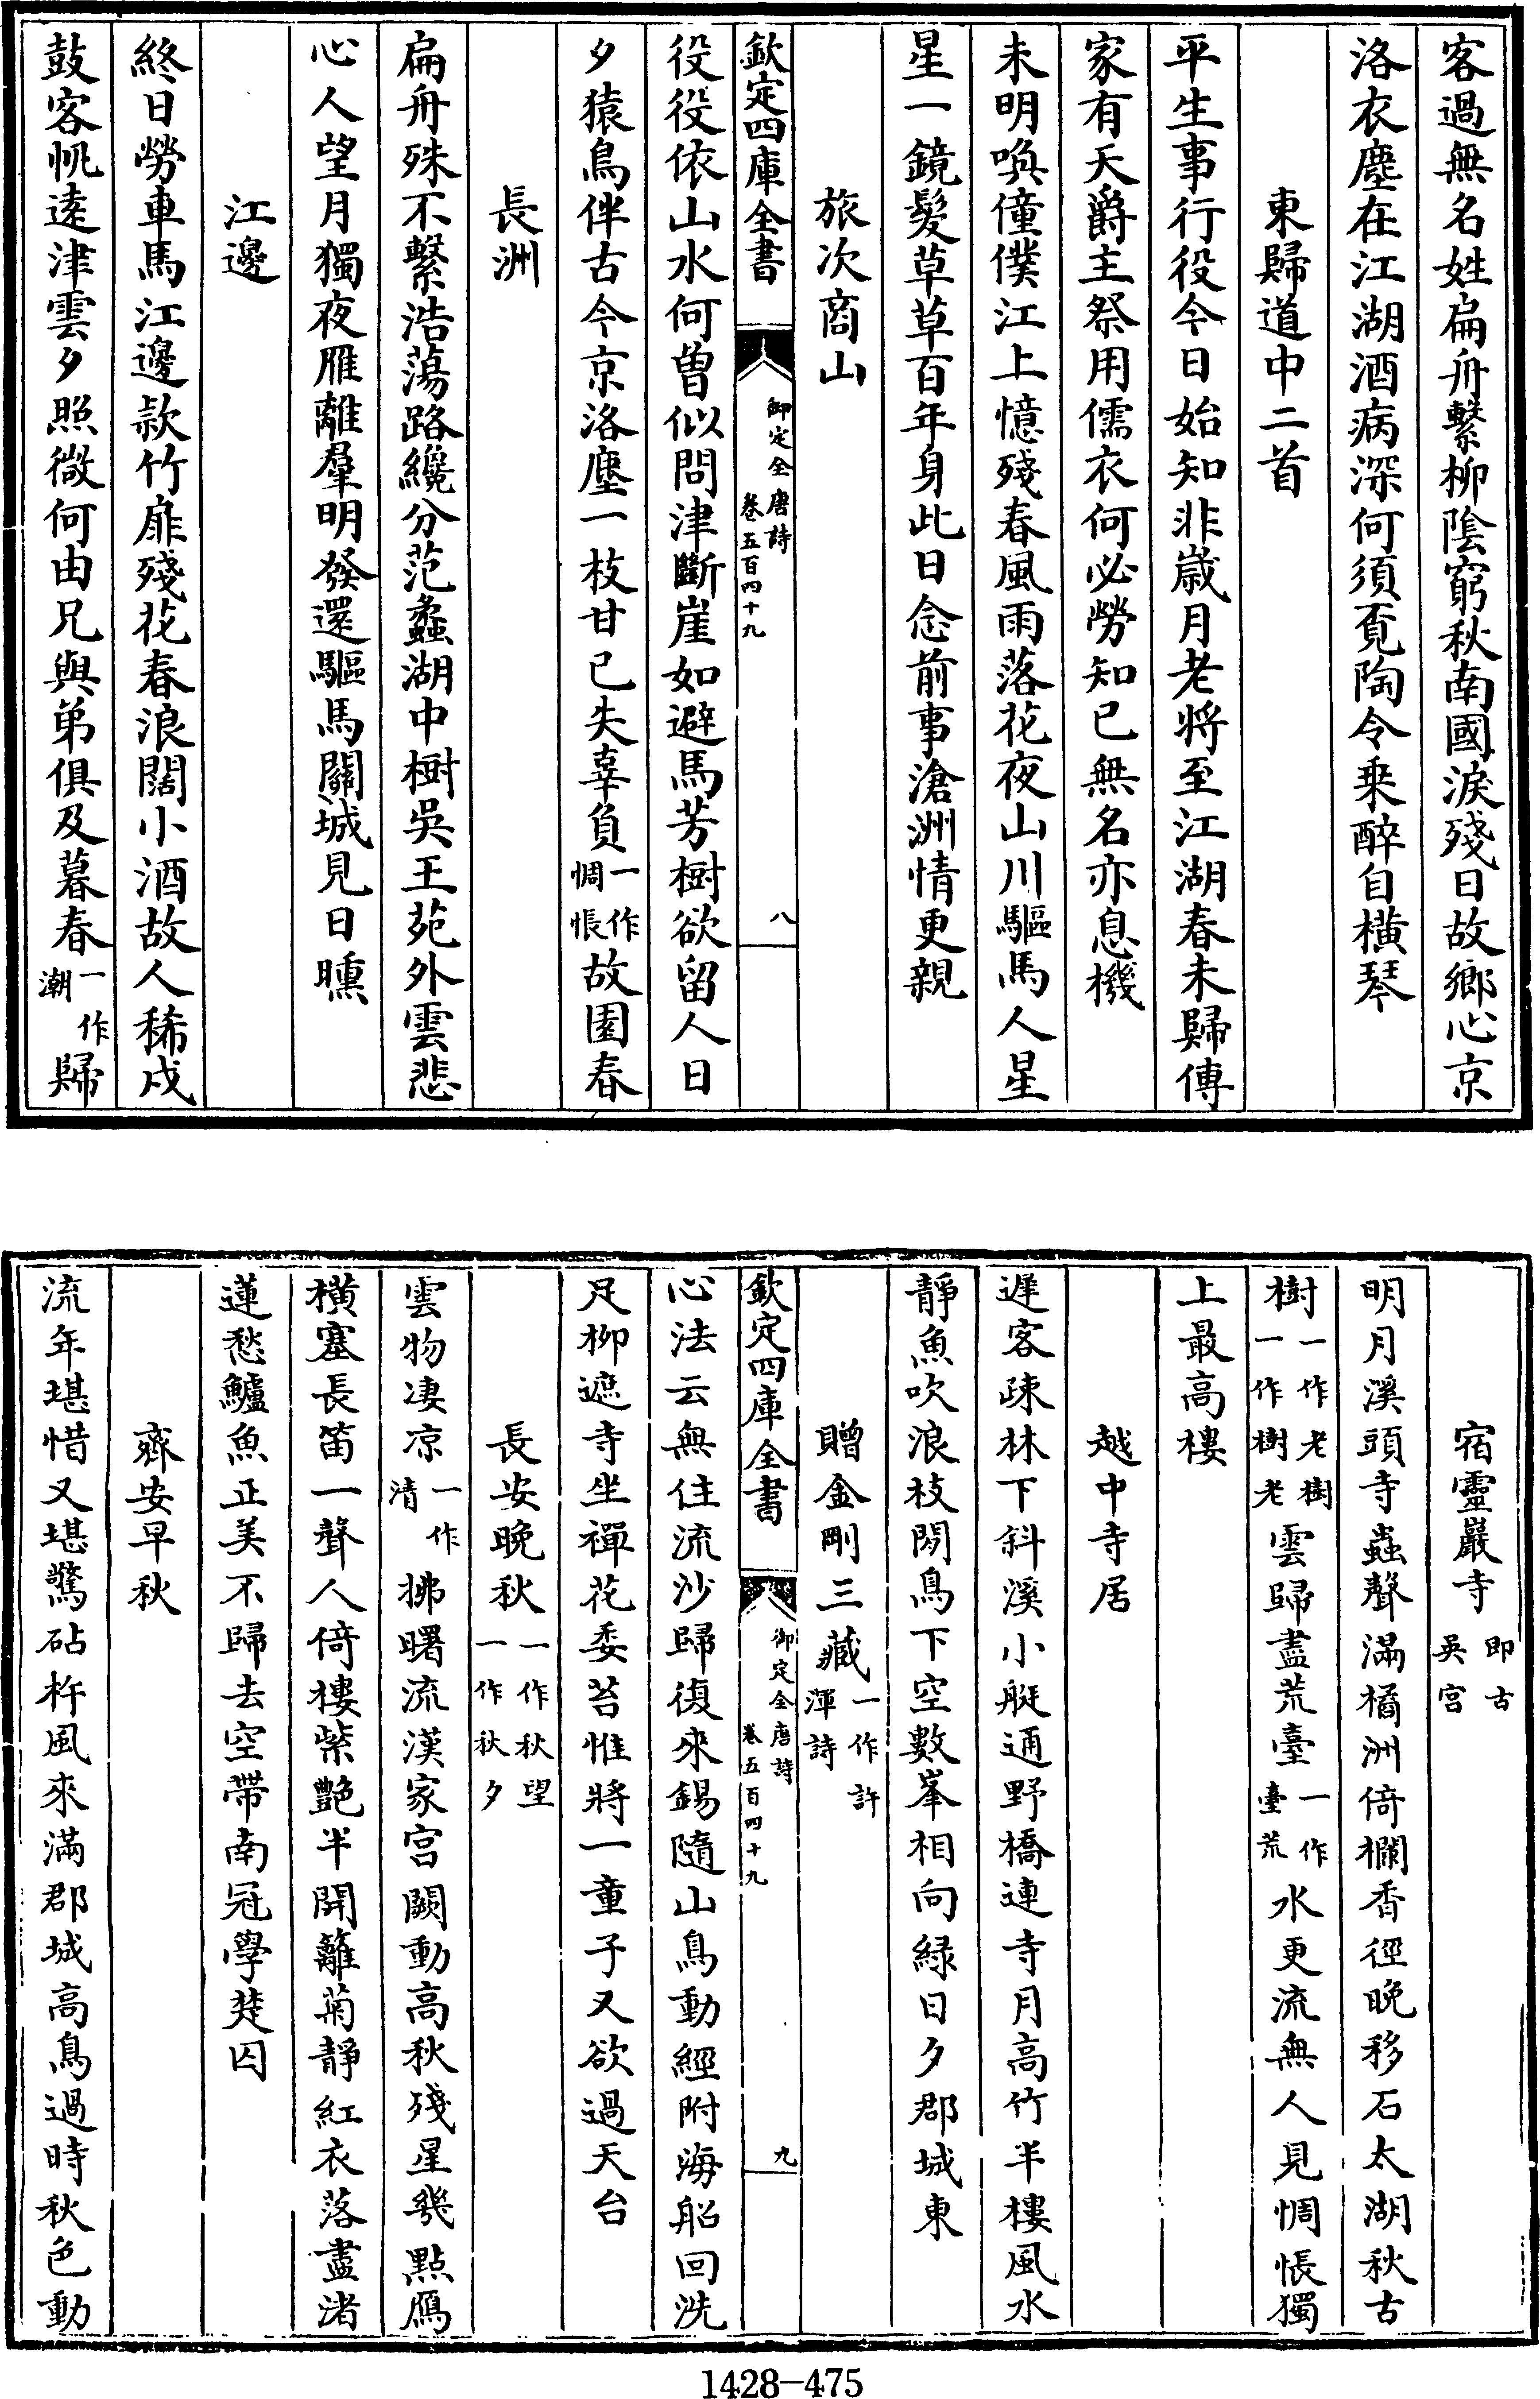 客過無名姓扁舟繫柳陰窮秋南國淚殘日故鄉心京
洛衣塵在江湖酒病深何須覔陶令乗醉自橫琴
東歸道中二首
平生事行役今日始知非嵗月老將至江湖春未歸傳
家有天爵主祭用儒衣何必勞知己無名亦息機
未明喚僮僕江上憶殘春風雨落花夜山川驅馬人星
星一鏡髮草草百年身此日念前事滄洲情更親
旅次商山
欽定四庫全書
御定全唐詩
卷五百四十九
八
役役依山水何曽似問津斷崖如避馬芳樹欲留人日
夕猿鳥伴古今京洛塵一枝甘已失辜負一作惆悵故園春
長洲
扁舟殊不繫浩蕩路纔分范蠡湖中樹吳王苑外雲悲
心人望月獨夜雁離羣明發還驅馬關城見日曛
江邊
終日勞車馬江邊款竹扉殘花春浪闊小酒故人稀戍
鼓客帆逺津雲夕照微何由兄與弟俱及暮春一作潮歸
宿靈巖寺即古吳宫
明月溪頭寺蟲聲滿橘洲倚欄香徑晚移石太湖秋古
樹一作老樹一作樹老雲歸盡荒臺一作臺荒水更流無人見惆悵獨
上最高樓
越中寺居
遲客疎林下斜溪小艇通野橋連寺月高竹半樓風水
靜魚吹浪枝閒鳥下空數峯相向緑日夕郡城東
贈金剛三藏一作許渾詩
欽定四庫全書
御定全唐詩
卷五百四十九
九
心法云無住流沙歸復來錫隨山鳥動經附海船回洗
足栁遮寺坐禪花委苔惟將一童子又欲過天台
長安晚秋一作秋望一作秋夕
雲物凄凉一作清拂曙流漢家宫闕動高秋殘星幾點鴈
橫塞長笛一聲人倚樓紫艷半開籬菊靜紅衣落盡渚
蓮愁鱸魚正美不歸去空帶南冠學楚囚
齊安早秋
流年堪惜又堪驚砧杵風來滿郡城高鳥過時秋色動
1428-475